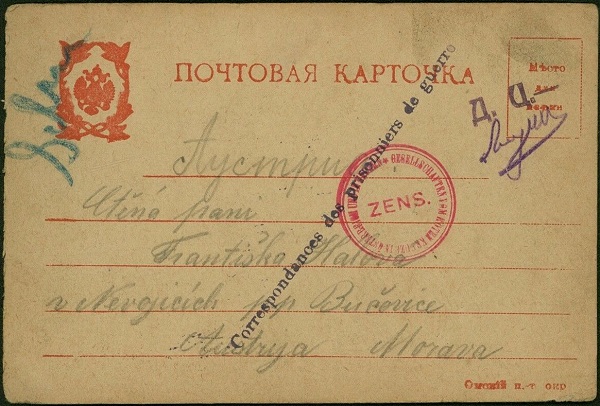 ПОЧТОВАЯ КАРТОЧКА
Мѣсто
для
марки
Д. Ц.
Correspondances des prisonniers de guerre
ZENS.
Аустрия
Ctěná paní
Františka
v Nevojicích pp Bučovice
Austryja Morava
Омскій п.-т. окр